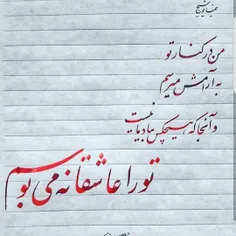 من در کنار تو
به آرامش میرسم
و آنجا که هیچکس بیاد ما نیست
تو را عاشقانه می بوسم